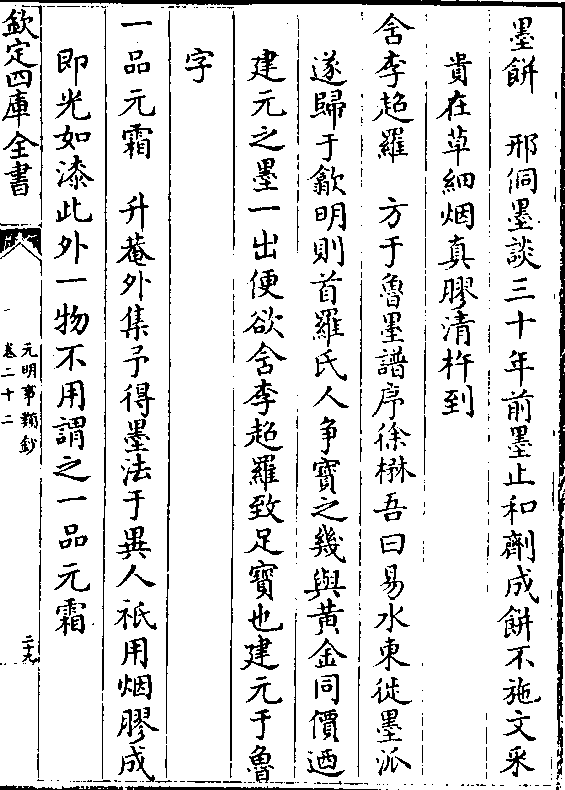 墨餅　邢侗墨談三十年前墨止和劑成餅不施文采
貴在草細烟真膠清杵到
舍李超羅　方于魯墨譜序徐楙吾曰易水東徙墨派
遂歸于歙明則首羅氏人爭寶之幾與黃金同價迺
建元之墨一出便欲舍李超羅致足寶也建元于魯
字
一品元霜　升菴外集予得墨法于異人祇用烟膠成
即光如漆此外一物不用謂之一品元霜
欽定四庫全書
元明事類鈔
卷二十二
二九